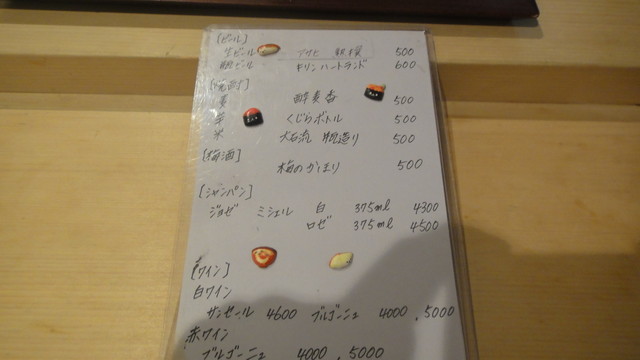 [ビール]
生ビール アサヒ 熟撰 500
瓶ビール キリンハートランド 600
[焼酎]
麦 酔麦香 500
芋 くじらボトル 500
米 大石流 500
[梅酒]
梅のかほり 500
[シャンパン]
ジョゼ ミシェル 白 375ml 4300
ロゼ 375ml 4500
[ワイン]
白ワイン
サンセール 4600 ブルゴーニュ 4000 , 5000
赤ワイン
ブルゴーニュ 4000 , 5000